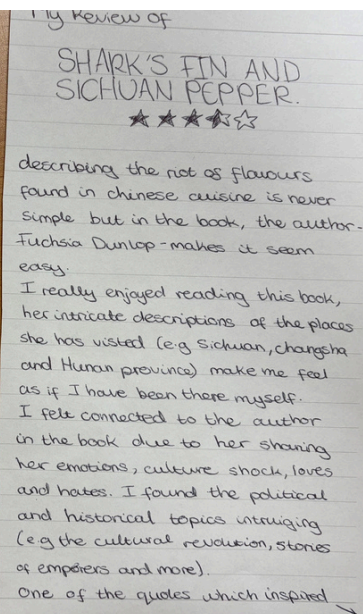 My Review of
SHARK'S FIN AND
SICHUAN PEPPER.
describing the riot of flavours
found in chinese cuisine is never
simple but in the book, the author-
Fuchsia Dunlop-makes it seem
easy.
I really enjoyed reading this book,
her intricate descriptions of the places
she has visted (e.g Sichuan, changsha
and Hunan province) make me feel
as if I have been there myself.
I felt connected to the author
in the book due to her sharing
her emotions, culture shock, loves
and hates. I found the political
and historical topics intruiging
(e.g the cultural revolution, stories
of emperers and more).
One of the quotes which inspired